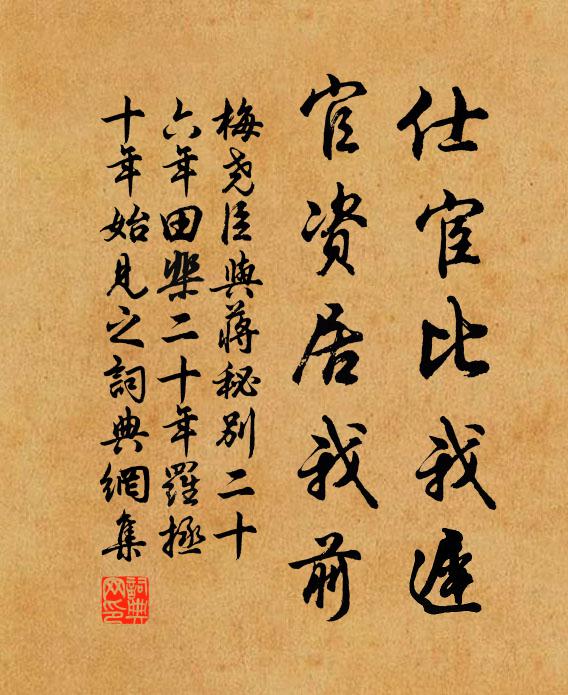 仕宦比我遲
官資居我前
梅堯臣與蔣秘別二十
六年田棐二十年羅拯
十年始見之詞典網集
詞典网印